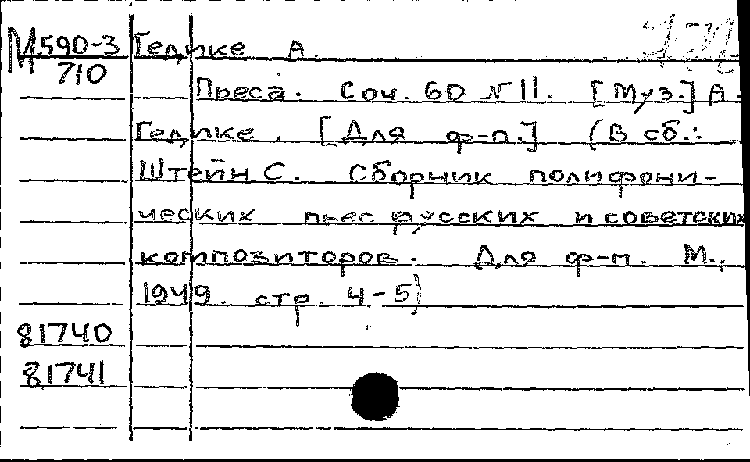 М590-3 Гедике А.
710
Пьеса. Соч. 60 №11. [Муз.] А.
Гедике. [Для ф-п.] (В сб.:
Штейн С. Сборник полифони-
ческих пьес русских и советских
композиторов. Для ф-п. М.,
1949. стр. 4-5)
81740
81741